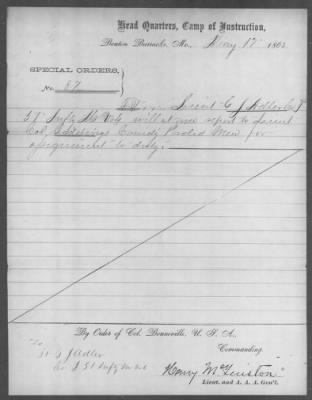 Head Quarters, Camp of Instruction,
Benton Barracks, Mo., 17 1862
SPECIAL ORDERS,
No. 57
Lieut C J Adler Co I
Infty Mo Vols will at once report to Lieut
Col, Comdg Paroled Men for
assignment to duty.
By Order of Col. Bonneville, U. S. A.,
Commanding.
To
Lt C J Adler
Co I Infty Mo Vol
Henry McGinston
Lieut. and A. A. A. Gen'l.